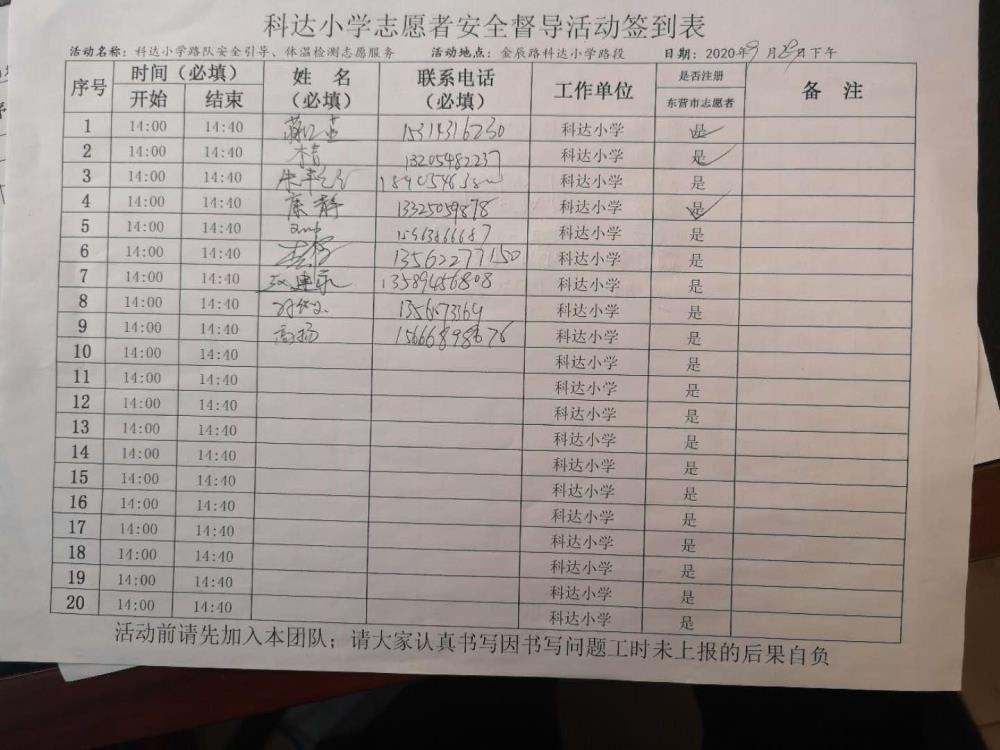 科达小学志愿者安全督导活动签到表
活动名称：科达小学路队安全引导、体温检测志愿服务 活动地点：金辰路科达小学路段 日期：2020年9月29日下午
序号 时间（必填） 姓 名（必填） 联系电话（必填） 工作单位 是否注册 备 注
开始 结束 东营市志愿者
1 14:00 14:40 15314316230 科达小学 是
2 14:00 14:40 13205482237 科达小学 是
3 14:00 14:40 科达小学 是
4 14:00 14:40 康静 13325059878 科达小学 是
5 14:00 14:40 科达小学 是
6 14:00 14:40 13562277150 科达小学 是
7 14:00 14:40 13589456808 科达小学 是
8 14:00 14:40 科达小学 是
9 14:00 14:40 高扬 15666898676 科达小学 是
10 14:00 14:40 科达小学 是
11 14:00 14:40 科达小学 是
12 14:00 14:40 科达小学 是
13 14:00 14:40 科达小学 是
14 14:00 14:40 科达小学 是
15 14:00 14:40 科达小学 是
16 14:00 14:40 科达小学 是
17 14:00 14:40 科达小学 是
18 14:00 14:40 科达小学 是
19 14:00 14:40 科达小学 是
20 14:00 14:40 科达小学 是
活动前请先加入本团队；请大家认真书写因书写问题工时未上报的后果自负